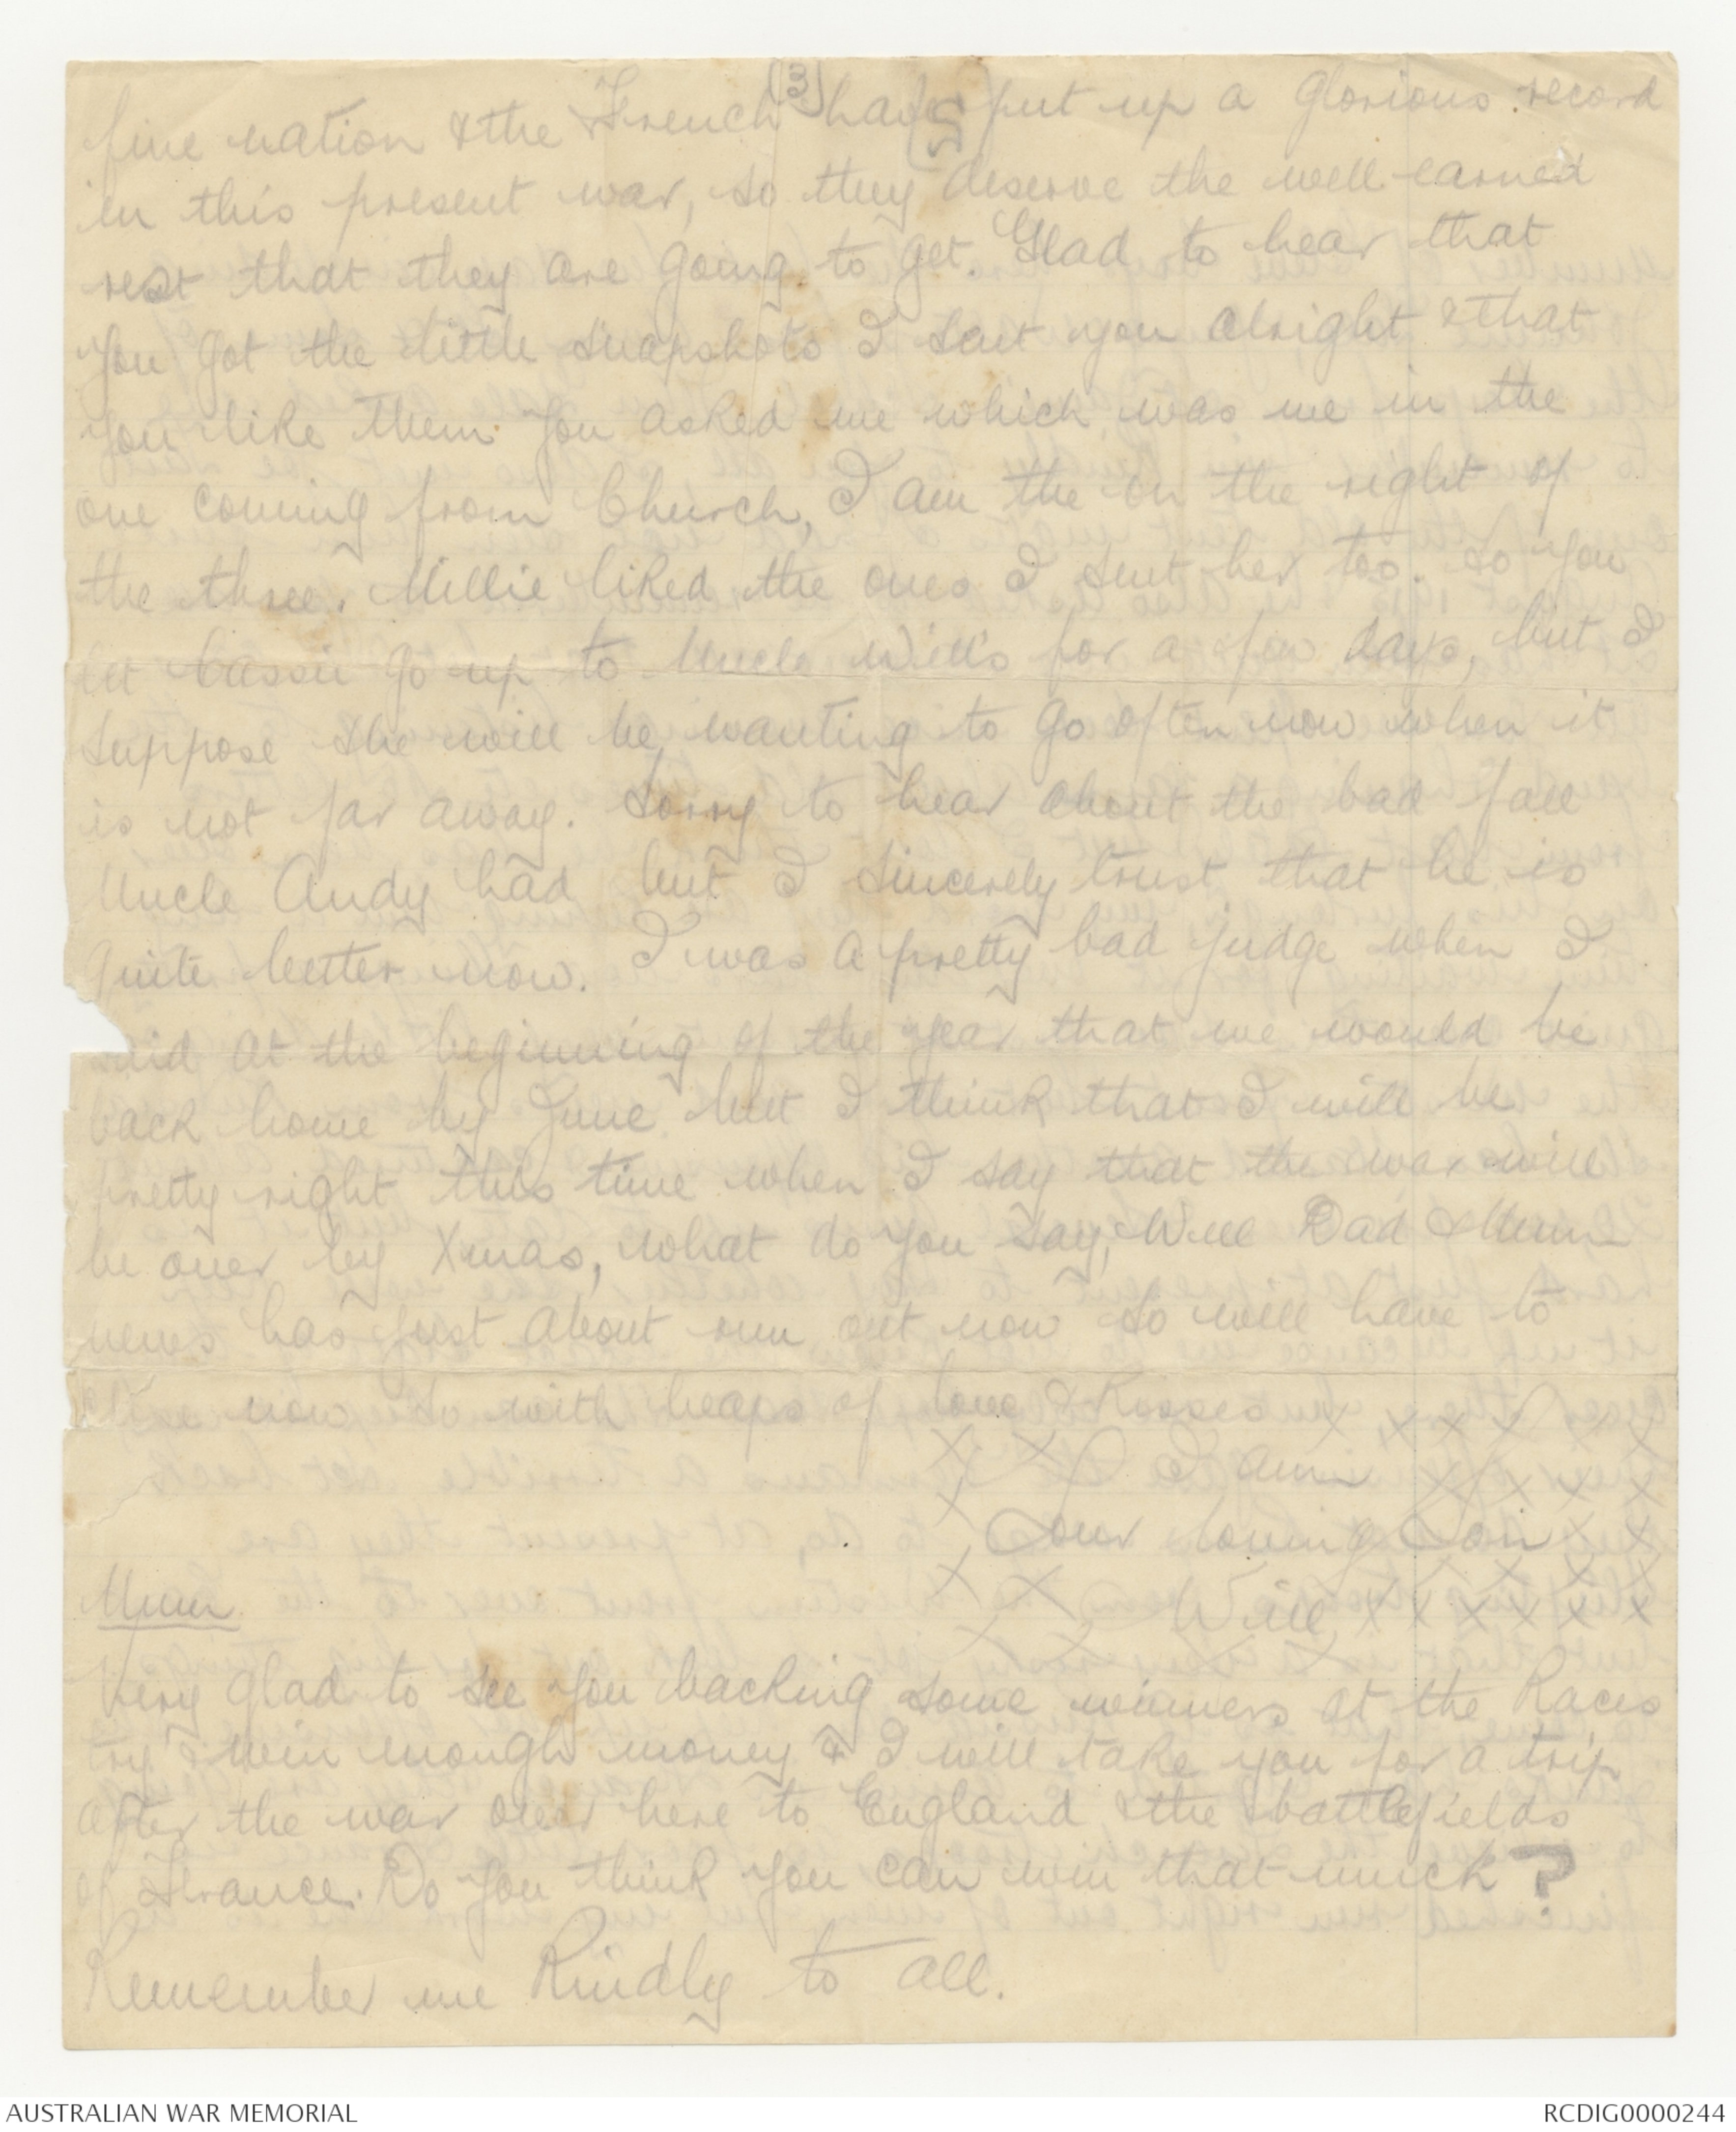 (3)
(5)
fine nation & the French have put up a glorious record
in this present war, so they deserve the well earned
rest that they are going to get. Glad to hear that
you got the little snapshots I sent you alright & that
you like them. You asked me which was me in the
one coming from Church, I am the on the right of
the three. Millie liked the ones I sent her too. So you
let Cassie go up to Uncle Will's for a few days, but I
suppose she will be wanting to go often now when it
is not far away. Sorry to hear about the bad fall
Uncle Andy had but I sincerely trust that he is
quite better now. I was a pretty bad judge when I
said at the beginning of the year that we would be
back home by June but I think that I will be
pretty right this time when I say that the war will
be over by Xmas, what do you say, Well Dad & Mum
news has just about run out now so will have to
close now so with heaps of love & Kisses x x x x x x
x x I am x x x x x
x Your loving Son x x
x x x x x x
Mum x x Will x x x x x x
x x x x x
Very glad to see you backing some winners at the Races
try & win enough money & I will take you for a trip
after the war over here to England & the battlefields
of France. Do you think you can win that much?
Remember me Kindly to all.
AUSTRALIAN WAR MEMORIAL
RCDIG0000244